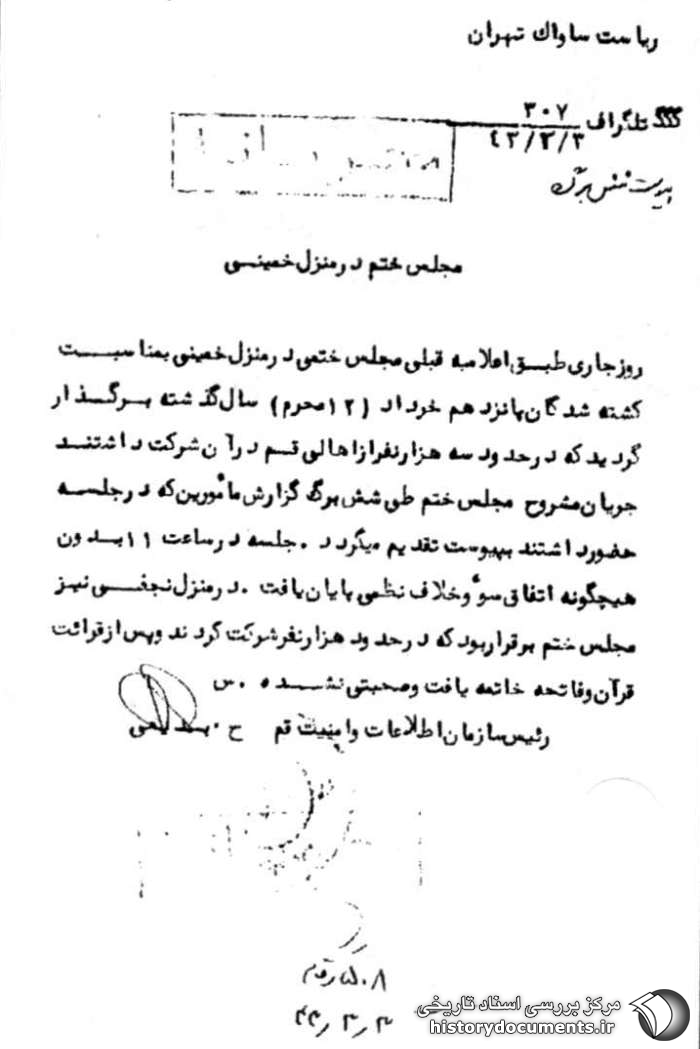 ریاست ساواک تهران
تلگراف ۳۰۷
۴۳/۳/۳
پیوست شش برگ
مجلس ختم در منزل خمینی
روز جاری طبق اعلامیه قبلی مجلس ختمی در منزل خمینی بمناسبت
کشته شدگان پانزدهم خرداد (۱۲ محرم) سال گذشته برگذار
گردید که در حدود سه هزار نفر از اهالی قم در آن شرکت داشتند
جریان مشروح مجلس ختم طی شش برگ گزارش مأمورین که در جلسه
حضور داشتند بپیوست تقدیم میگردد . جلسه در ساعت ۱۱ بدون
هیچگونه اتفاق سوء و خلاف نظمی پایان یافت . در منزل نجفی نیز
مجلس ختم برقرار بود که در حدود هزار نفر شرکت کردند و پس از قرائت
قرآن و فاتحه خاتمه یافت و صحبتی نشده . س
رئیس سازمان اطلاعات و امنیت قم ح . بدیعی
۴۳/۳/۳
مرکز بررسی اسناد تاریخی
historydocuments.ir